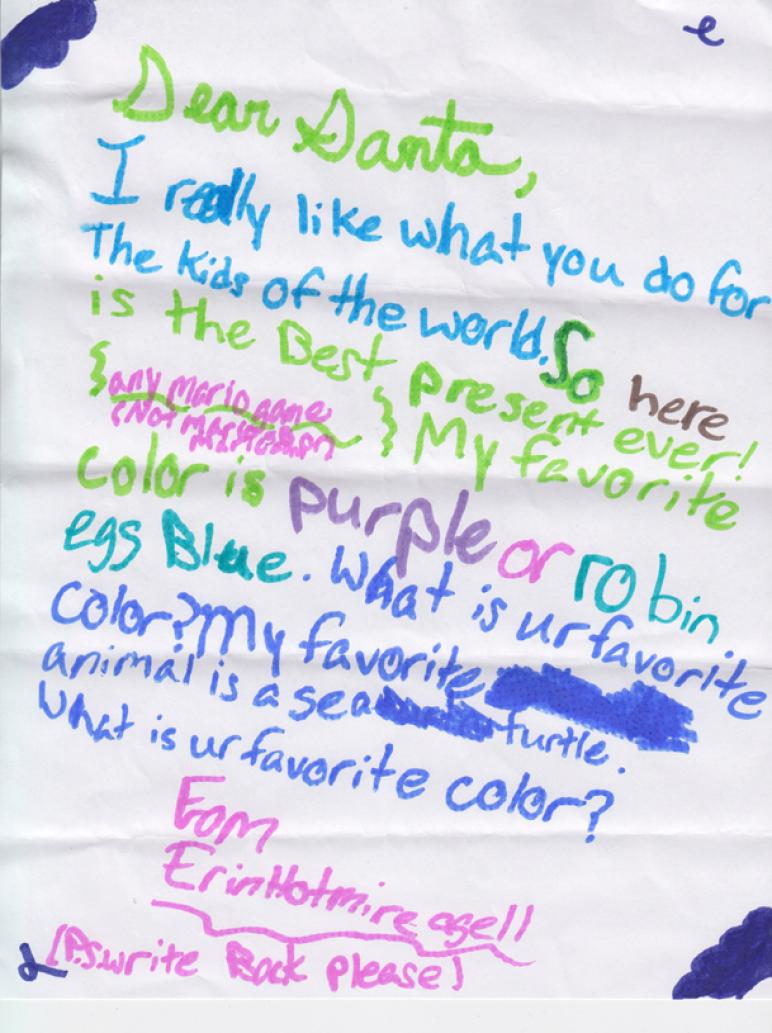 e
Dear Santa,
I really like what you do for
The kids of the world. So here
is the Best present ever!
{any mario game
(Not mario } My favorite
color is purple or robin
egg Blue. What is ur favorite
color? My favorite
animal is a sea turtle.
What is ur favorite color?
From
Erin Hotmire age 11
(P.S. write Back please)